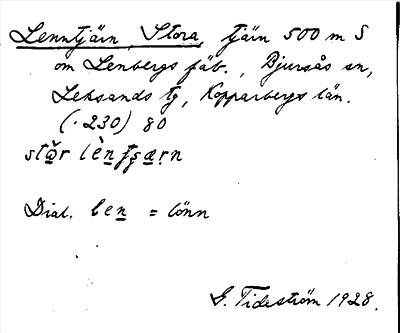 Lenntjärn, Stora, tjärn 500 m S
om Lenbergs fäb., Bjursås sn,
Leksands tg, Kopparbergs län.
(.230) 80
Dial. len = lönn
G. Tideström 1928.